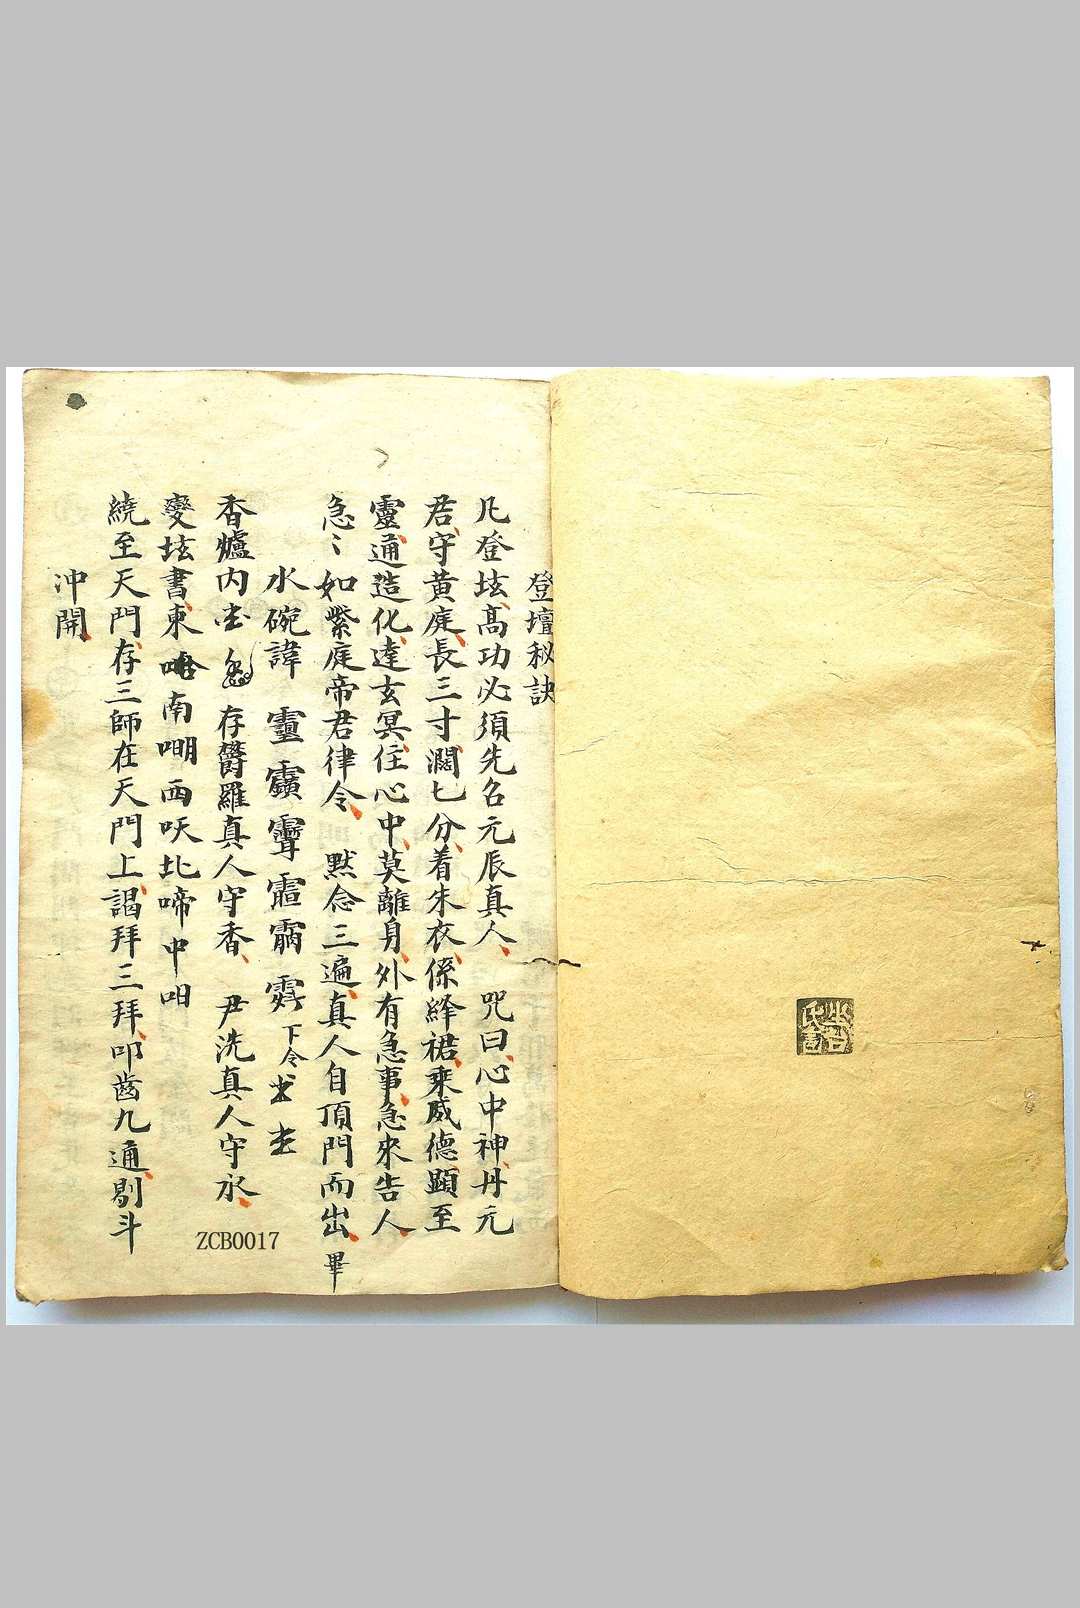 登壇秘訣
凡登坛髙功必須先召元辰真人 咒曰心中神丹元
君守黄庭長三寸濶七分着朱衣係絳裙乘威德顕至
靈通造化達玄冥住心中莫離身外有急事急來告人
急〻如紫庭帝君律令 黙念三遍真人自頂門而出畢
水碗諱 下令
香爐内 存欝羅真人守香 尹洗真人守水
變坛書東 南嘲西吷北啼中呫
繞至天門存三師在天門上謁拜三拜叩齒九通剔斗
沖開
ZCB0017